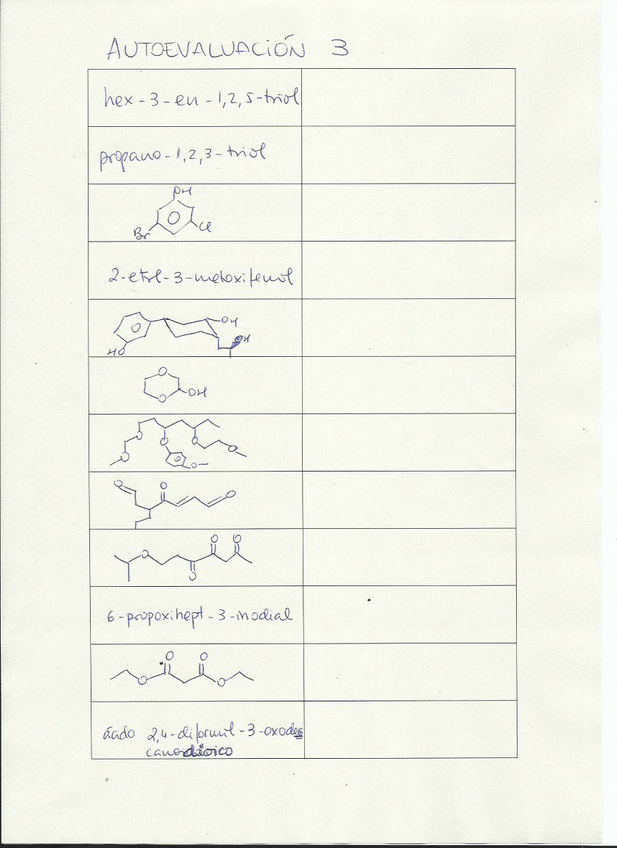 AUTOEVALUACIÓN 3
hex-3-en-1,2,5-triol
propano-1,2,3-triol
OH
Br Cl
2-etil-3-metoxifenol
OH
HO OH
O
O OH
O O O
O O
O
O O O
O O O
O
6-propoxihept-3-inodial
O O
O O
ácido 2,4-diformil-3-oxodec
canodioico